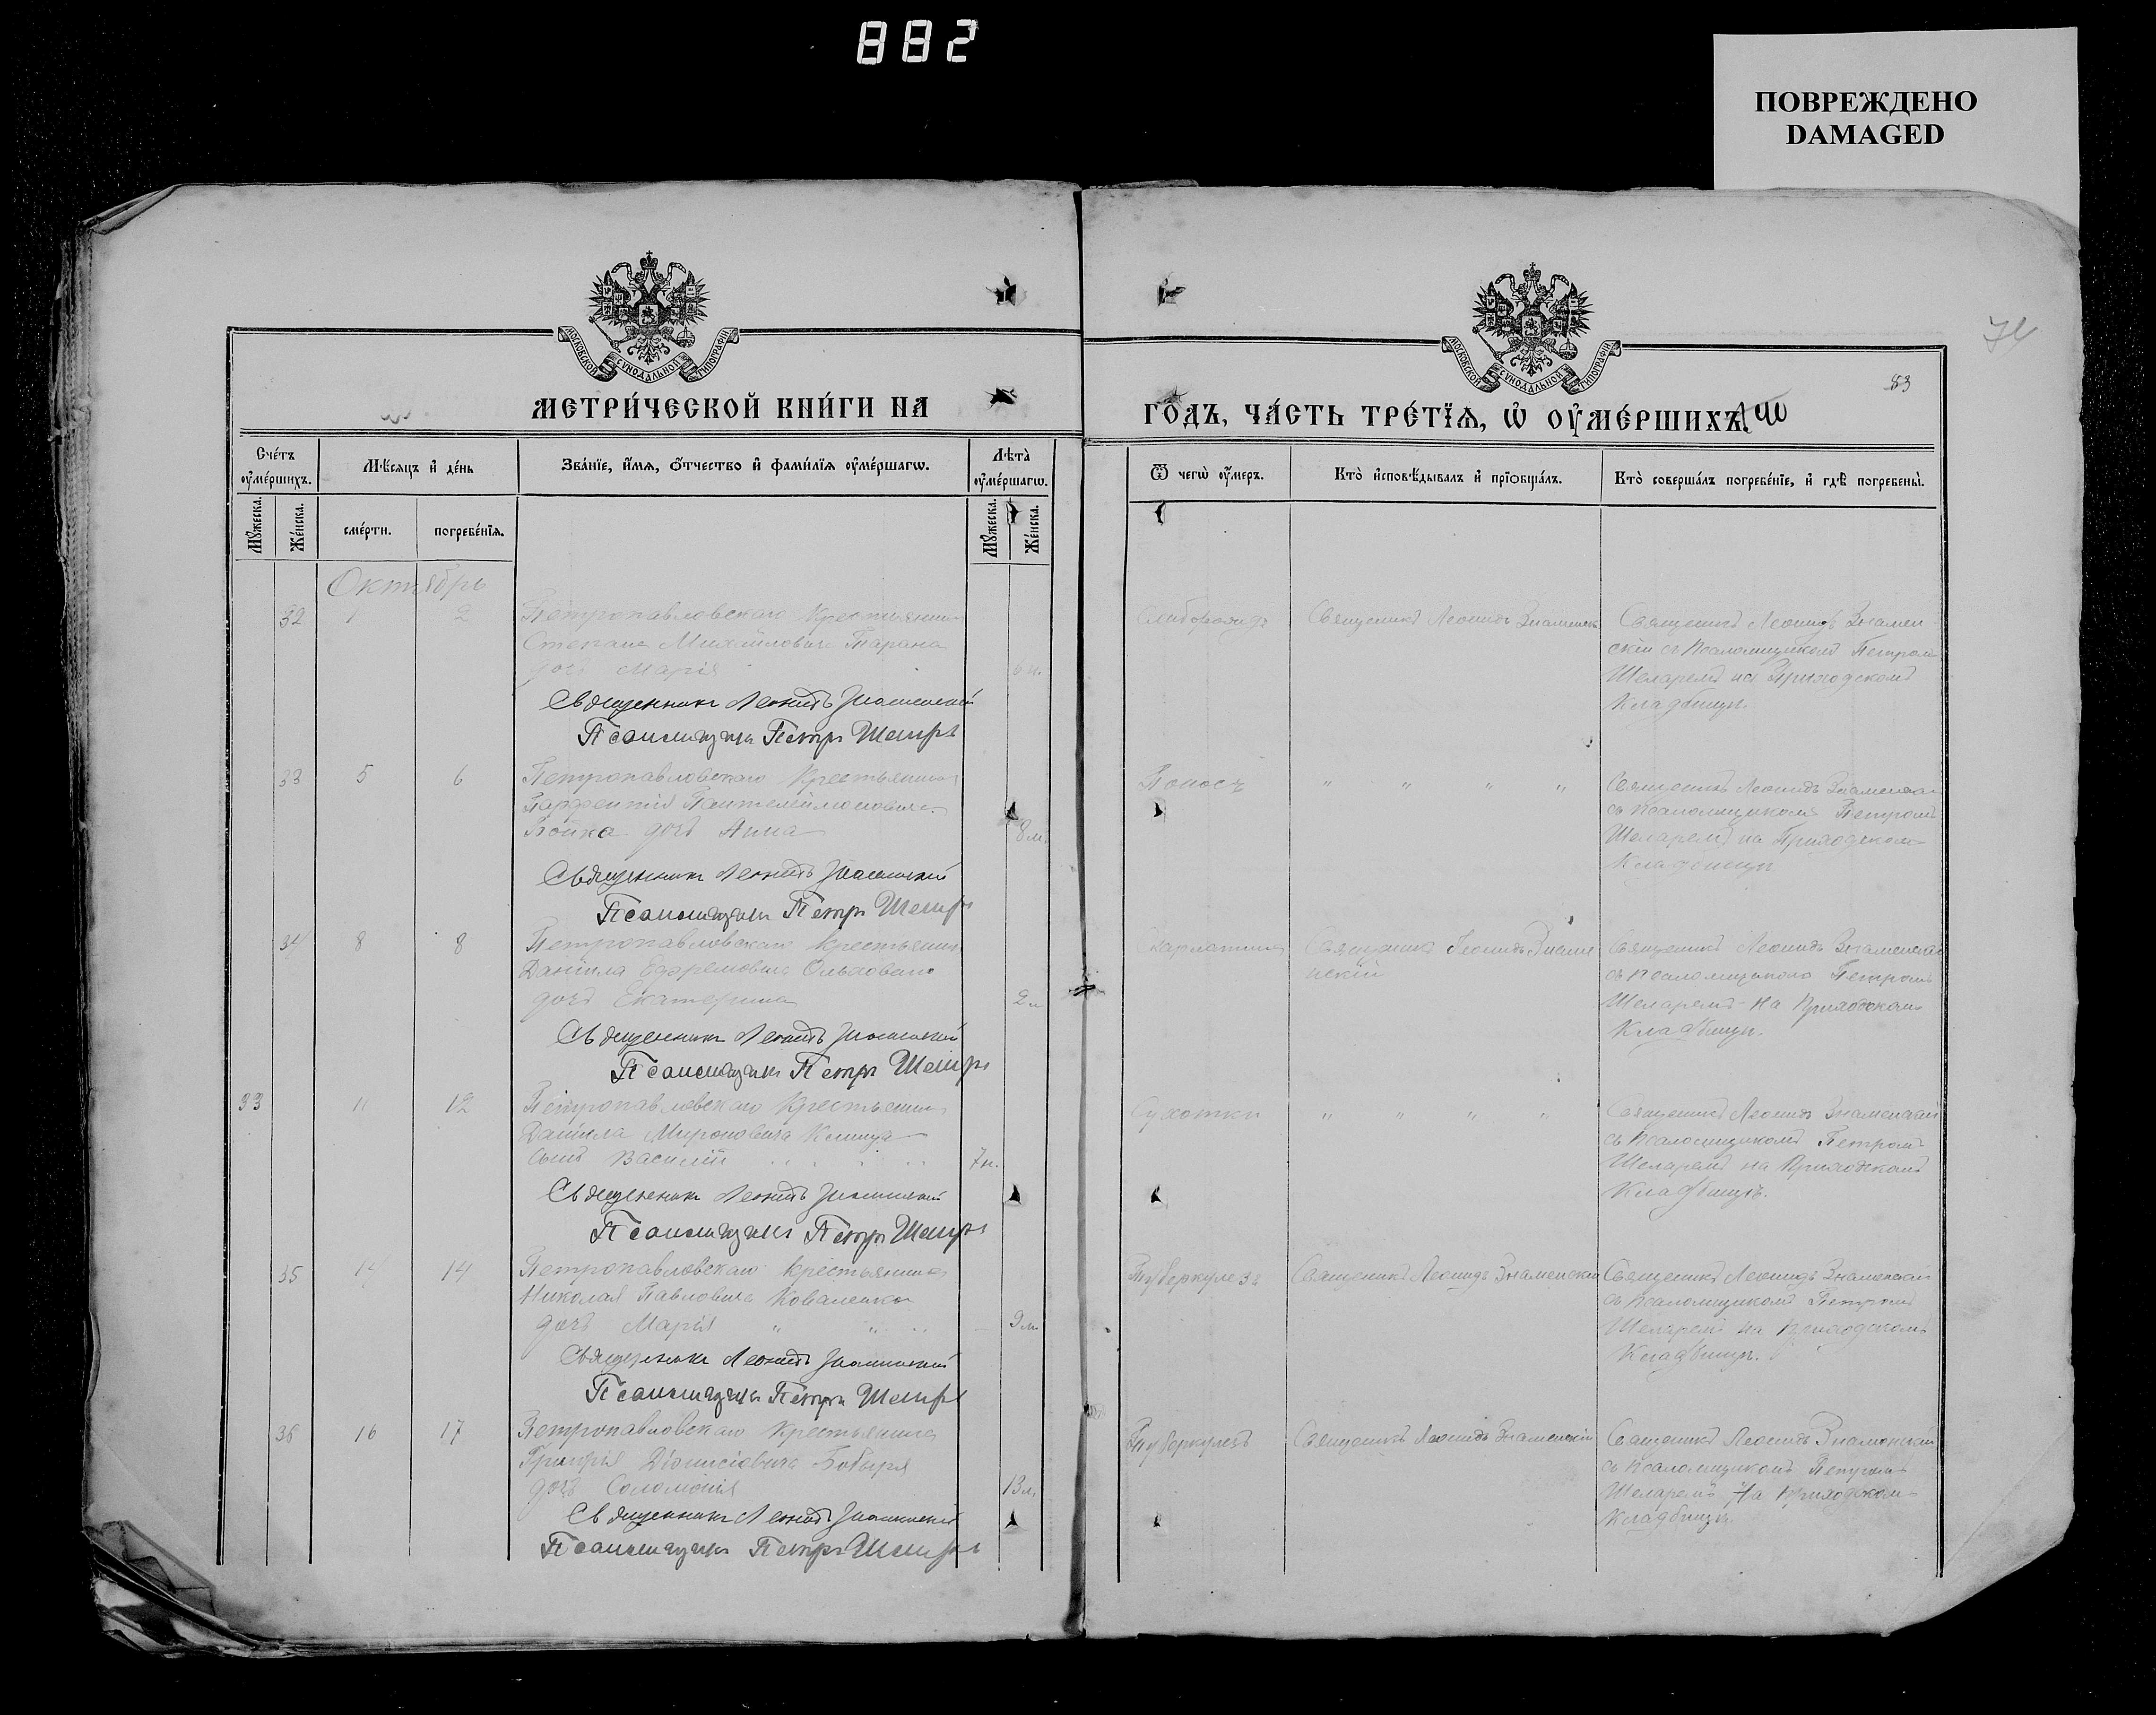 882
ПОВРЕЖДЕНО
DAMAGED
МОСКОВСКОЙ СѴНОДАЛЬНОЙ ТИПОГРАФІИ
МОСКОВСКОЙ СѴНОДАЛЬНОЙ ТИПОГРАФІИ
83
МЕТРИ́ЧЕСКОЙ КНИ́ГИ НА
ГО́ДЪ, ЧА́СТЬ ТРЕ́ТЇѦ, Ѡ҆ ОУ҆МЕ́РШИХЪ.
Сче́тъ оу҆ме́ршихъ.
Мѣ́сяцъ и҆ де́нь
Зва́нїе, и҆́мя, о҆́тчество и҆ фами́лїя оу҆ме́ршагѡ.
Лѣ́та оу҆ме́ршагѡ.
Ѿ чегѡ̀ оу҆́меръ.
Кто̀ и҆сповѣ́дывалъ и҆ прїѻбща́лъ.
Кто̀ соверша́лъ погребе́нїе, и҆ гдѣ̀ погребены̀.
Мꙋ́жеска.
Же́нска.
сме́рти.
погребе́нїя.
Мꙋ́жеска.
Же́нска.
Октябрь
32 1 2 Петропавловскаго Крестьянина
Степана Михайловича Тарана
дочь Марія
Священникъ Леонидъ Знаменскій
Псаломщикъ Петръ
Священникъ Леонидъ
Священникъ Леонидъ Знамен
скій съ Псаломщикомъ Петромъ
на Приходскомъ
Кладбищѣ.
33 5 6 Петропавловскаго Крестьянина
Парфентія Пантелеймоновича
дочь Анна 8 м.
Священникъ Леонидъ Знаменскій
Псаломщикъ Петръ
Поносъ " " " "
Священникъ Леонидъ Знаменскій
съ Псаломщикомъ Петромъ
на Приходскомъ
Кладбищѣ
34 8 8 Петропавловскаго Крестьянина
Даніила Ефремовича
дочь Екатерина
Священникъ Леонидъ Знаменскій
Псаломщикъ Петръ
Скарлатина Священникъ Леонидъ Знаме
нскій
Священникъ Леонидъ Знаменскій
съ Псаломщикомъ Петромъ
на Приходскомъ
Кладбищѣ.
33 11 12 Петропавловскаго Крестьянина
Даніила Мироновича
сынъ Василій
Священникъ Леонидъ Знаменскій
Псаломщикъ Петръ
Сухотки " " " "
Священникъ Леонидъ Знаменскій
съ Псаломщикомъ Петромъ
на Приходскомъ
Кладбищѣ.
35 14 14 Петропавловскаго Крестьянина
Николая Павловича Коваленко
дочь Марія " "
Священникъ Леонидъ Знаменскій
Псаломщикъ Петръ
Туберкулезъ Священникъ Леонидъ Знаменскій
Священникъ Леонидъ Знаменскій
съ Псаломщикомъ Петромъ
на Приходскомъ
Кладбищѣ.
36 16 17 Петропавловскаго Крестьянина
Григорія Діонисіовича Бобыря
дочь Соломонія
Священникъ Леонидъ Знаменскій
Псаломщикъ Петръ
Туберкулезъ Священникъ Леонидъ Знаменскій
Священникъ Леонидъ Знаменскій
съ Псаломщикомъ Петромъ
на Приходскомъ
Кладбищѣ.